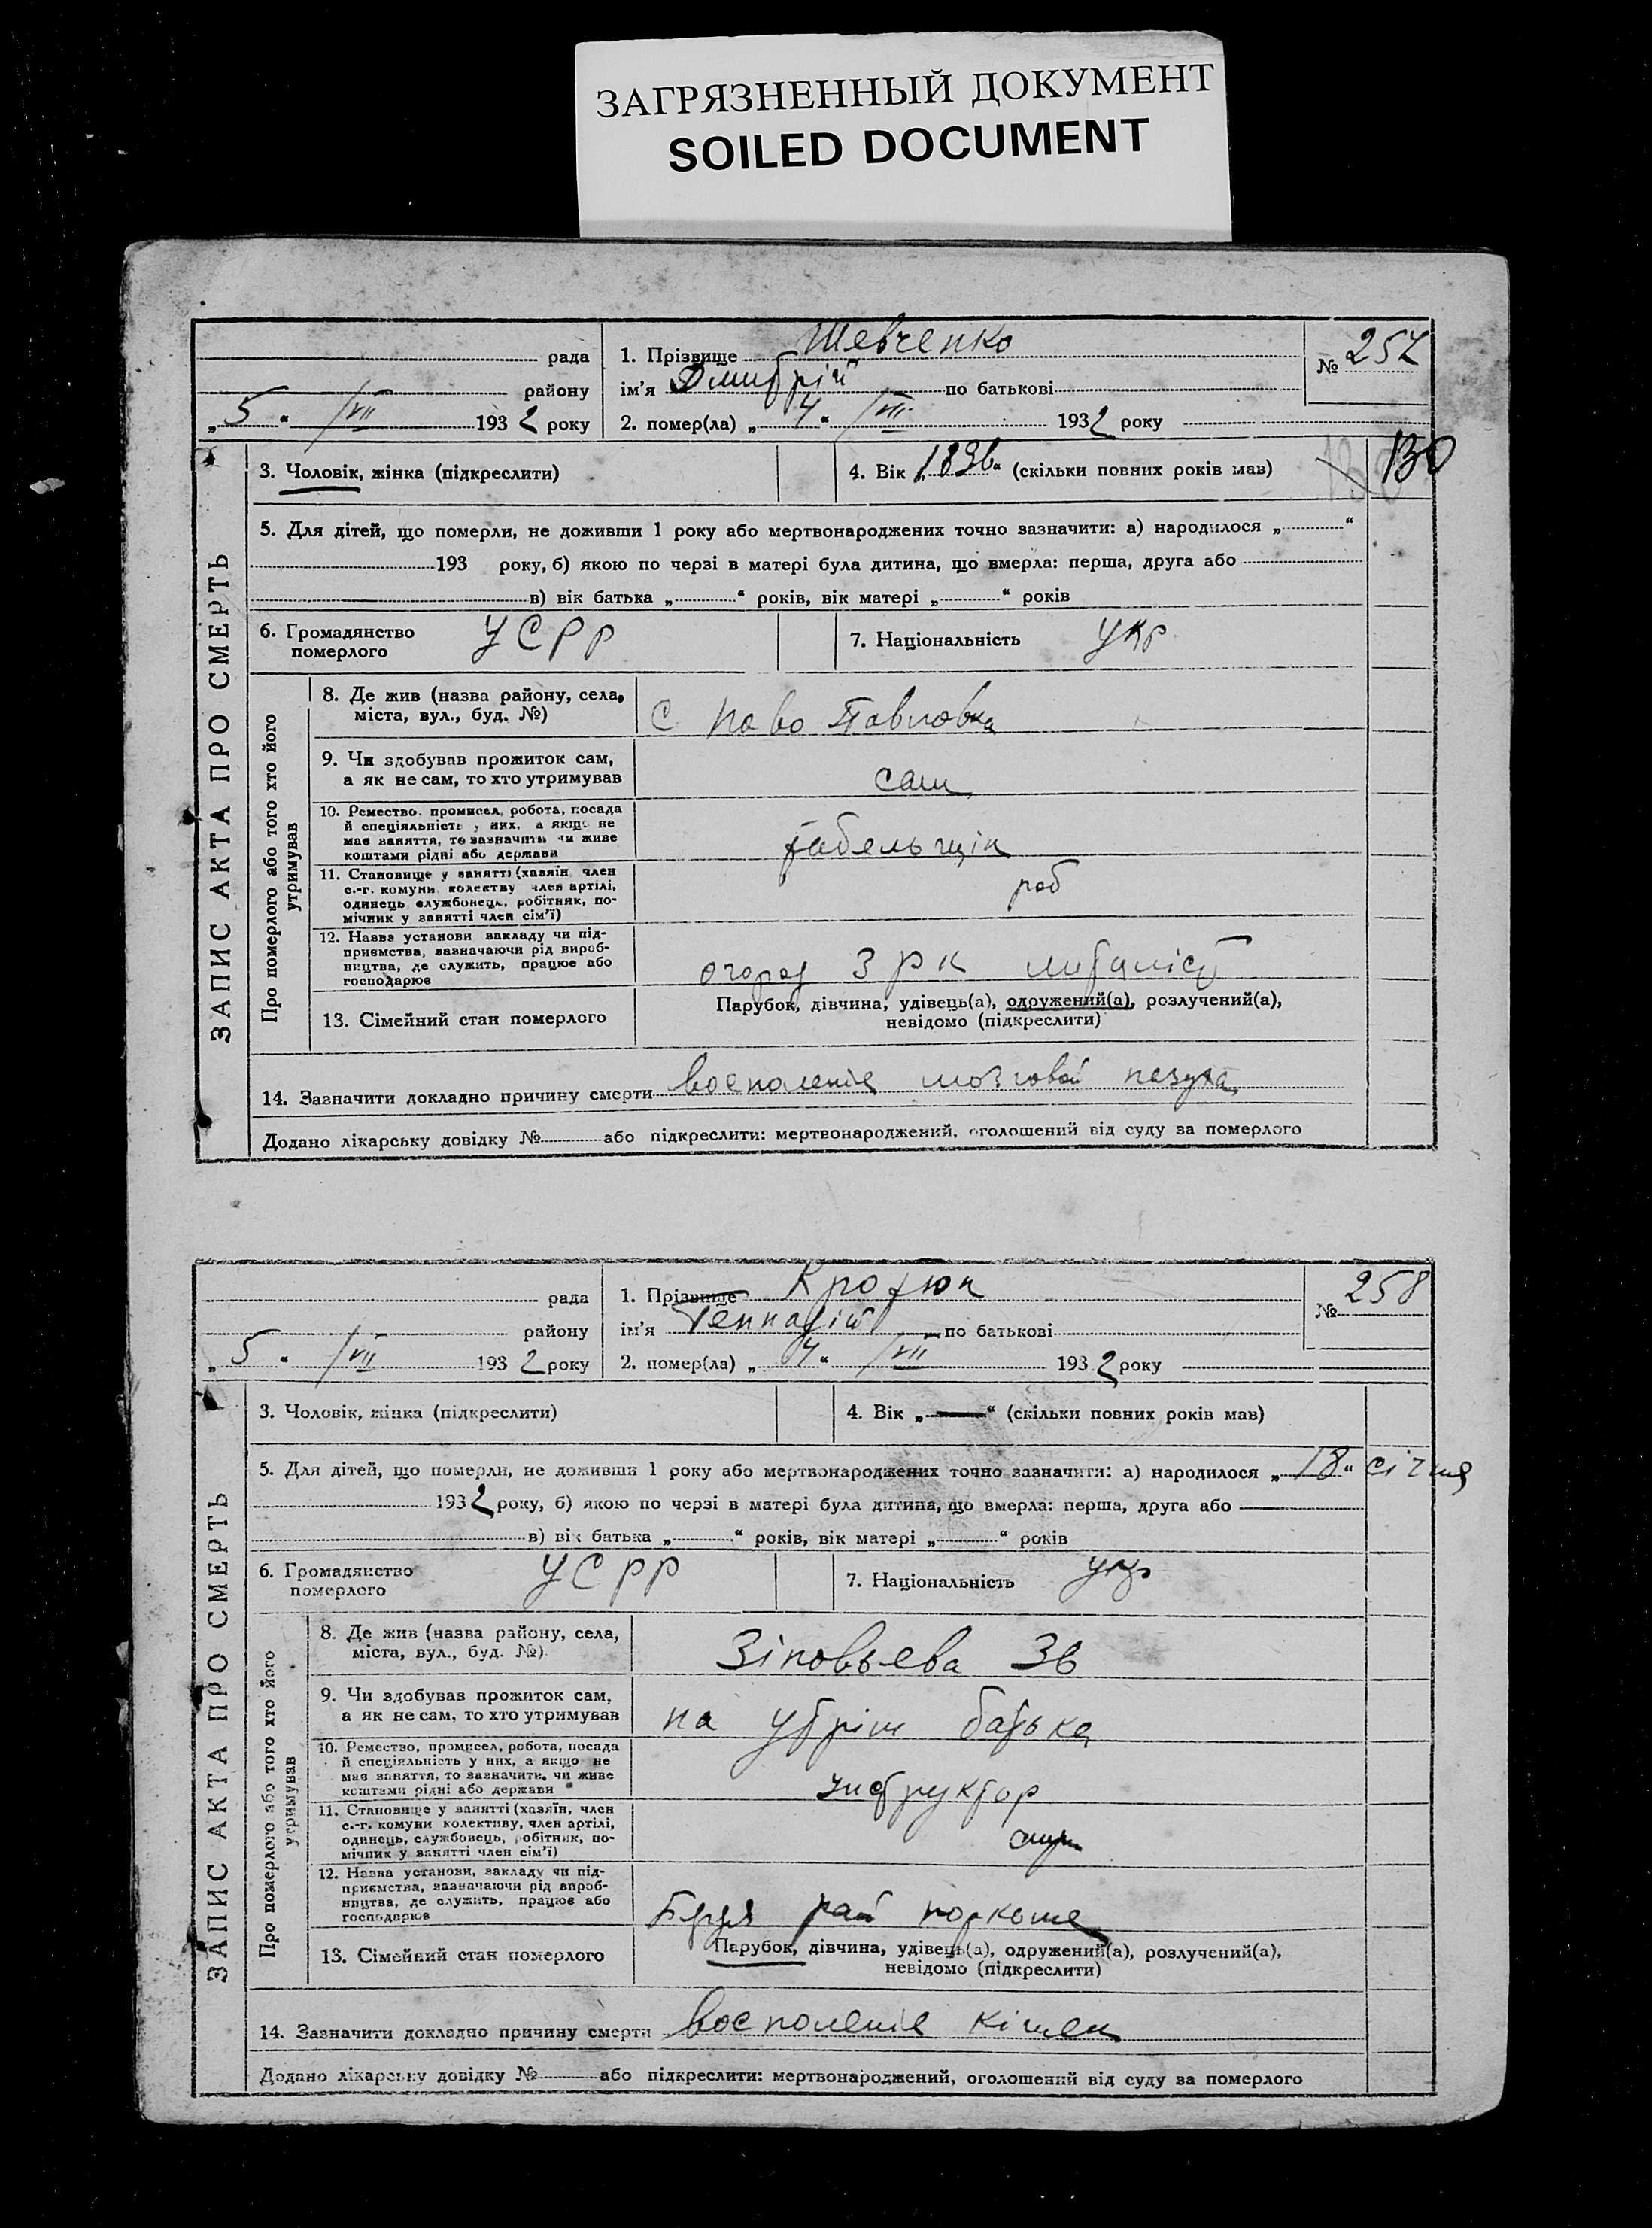 ЗАГРЯЗНЕННЫЙ ДОКУМЕНТ
SOILED DOCUMENT
ЗАПИС АКТА ПРО СМЕРТЬ
рада
району
„ 5 “ /VII 1932 року
1. Прізвище Шевченко
ім'я Дмитрій по батькові
2. помер(ла) „ 4 “ /VII 1932 року
№ 257
3. Чоловік, жінка (підкреслити)
4. Вік „ 1896 “ (скільки повних років мав)
130
5. Для дітей, що померли, не доживши 1 року або мертвонароджених точно зазначити: а) народилося „ “
193 року, б) якою по черзі в матері була дитина, що вмерла: перша, друга або
в) вік батька „ “ років, вік матері „ “ років
6. Громадянство
померлого
УСРР
7. Національність укр
Про померлого або того хто його
утримував
8. Де жив (назва району, села,
міста, вул., буд. №)
с Ново Павловка
9. Чи здобував прожиток сам,
а як не сам, то хто утримував
сам
10. Ремество, промисел, робота, посада
й спеціяльність у них, а якщо не
має заняття, то зазначить чи живе
коштами рідні або держави
табельщік
11. Становище у занятті (хазяїн, член
с.-г. комуни колективу член артілі,
одинець, службовець, робітник, по-
мічник у занятті член сім'ї)
роб
12. Назва установи закладу чи під-
приємства, зазначаючи рід вироб-
ництва, де служить, працює або
господарює
огород ЗРК
13. Сімейний стан померлого
Парубок, дівчина, удівець(а), одружений(а), розлучений(а),
невідомо (підкреслити)
14. Зазначити докладно причину смерти воспаленіе мозговой
Додано лікарську довідку № або підкреслити: мертвонароджений, оголошений від суду за померлого
ЗАПИС АКТА ПРО СМЕРТЬ
рада
району
„ 5 “ /VII 1932 року
1. Прізвище Кротюк
ім'я Геннадій по батькові
2. помер(ла) „ 4 “ /VII 1932 року
№ 258
3. Чоловік, жінка (підкреслити)
4. Вік „ — “ (скільки повних років мав)
5. Для дітей, що померли, не доживши 1 року або мертвонароджених точно зазначити: а) народилося „ 18 “ січня
1932 року, б) якою по черзі в матері була дитина, що вмерла: перша, друга або
в) вік батька „ “ років, вік матері „ “ років
6. Громадянство
померлого
УСРР
7. Національність укр
Про померлого або того хто його
утримував
8. Де жив (назва району, села,
міста, вул., буд. №)
Зіновьева 36
9. Чи здобував прожиток сам,
а як не сам, то хто утримував
на утрім батька
10. Ремество, промисел, робота, посада
й спеціяльність у них, а якщо не
має заняття, то зазначити, чи живе
коштами рідні або держави
інструктор
11. Становище у занятті (хазяїн, член
с.-г. комуни колективу, член артілі,
одинець, службовець, робітник, по-
мічник у занятті член сім'ї)
12. Назва установи, закладу чи під-
приємства, зазначаючи рід вироб-
ництва, де служить, працює або
господарює
рай
13. Сімейний стан померлого
Парубок, дівчина, удівець(а), одружений(а), розлучений(а),
невідомо (підкреслити)
14. Зазначити докладно причину смерти воспаленіе кішек
Додано лікарську довідку № або підкреслити: мертвонароджений, оголошений від суду за померлого